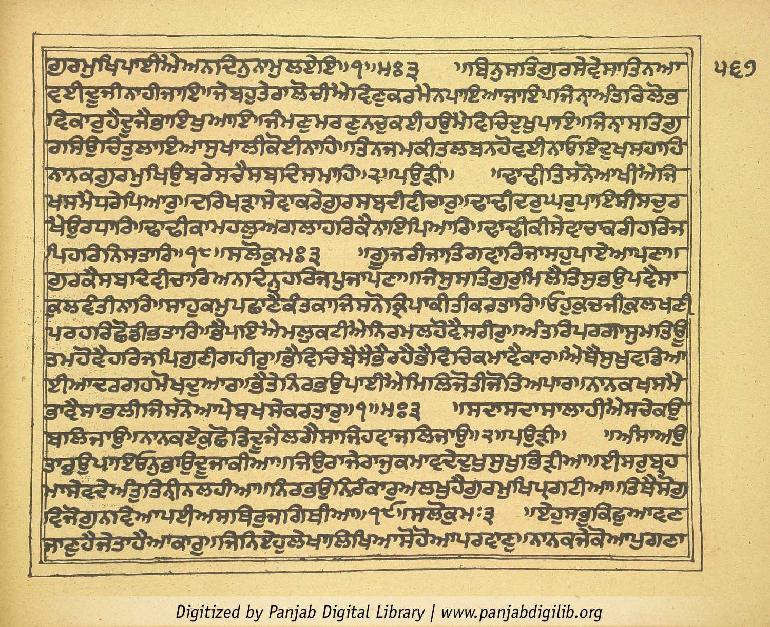 ਗੁਰਮੁਖਿਪਾਈਐਅਨਦਿਨੁਨਾਮੁਲਏਇ॥੧॥ਮਃ੩ ॥ਬਿਨੁਸਤਿਗੁਰਸੇਵੇਸਾਤਿਨਆ ੫੬੭
ਵਈਦੂਜੀਨਾਹੀਜਾਇ॥ਜੇਬਹੁਤੇਰਾਲੋਚੀਐਵਿਣੁਕਰਮੈਨਪਾਇਆਜਾਇ॥ਜਿਨਾੑਅੰਤਰਿਲੋਭ
ਵਿਕਾਰੁਹੈਦੂਜੈਭਾਇਖੁਆਇ॥ਜੰਮਣੁਮਰਣੁਨਚੁਕਈਹਉਮੈਵਿਚਿਦੁਖੁਪਾਇ॥ਜਿਨਾੑਸਤਿਗੁ
ਰਸਿਉਚਿਤੁਲਾਇਆਸੁਖਾਲੀਕੋਈਨਾਹਿ॥ਤਿਨਜਮਕੀਤਲਬਨਹੋਵਈਨਾਓਇਦੁਖਸਹਾਹਿ
ਨਾਨਕਗੁਰਮੁਖਿਉਬਰੇਸਚੈਸਬਦਿਸਮਾਹਿ॥੨॥ਪਉੜੀ॥ ॥ਢਾਢੀਤਿਸਨੋਆਖੀਐਜਿ
ਖਸਮੈਧਰੇਪਿਆਰੁ॥ਦਰਿਖੜਾਸੇਵਾਕਰੇਗੁਰਸਬਦੀਵੀਚਾਰੁ॥ਢਾਢੀਦਰੁਘਰੁਪਾਇਸੀਸਚੁਰ
ਖੈਉਰਧਾਰਿ॥ਢਾਢੀਕਾਮਹਲੁਅਗਲਾਹਰਿਕੈਨਾਇਪਿਆਰਿ॥ਢਾਢੀਕੀਸੇਵਾਚਾਕਰੀਹਰਿਜ
ਪਿਹਰਿਨਿਸਤਾਰਿ॥੧੮॥ਸਲੋਕੁਮਃ੩ ॥ਗੂਜਰੀਜਾਤਿਗਵਾਰਿਜਾਸਹੁਪਾਏਆਪਣਾ॥
ਗੁਰਕੈਸਬਦਿਵੀਚਾਰਿਅਨਦਿਨੁਹਰਿਜਪੁਜਾਪਣਾ॥ਜਿਸੁਸਤਿਗੁਰੁਮਿਲੈਤਿਸੁਭਉਪਵੈਸਾ
ਕੁਲਵੰਤੀਨਾਰਿ॥ਸਾਹੁਕਮੁਪਛਾਣੈਕੰਤਕਾਜਿਸਨੋਕ੍ਰਿਪਾਕੀਤੀਕਰਤਾਰਿ॥ਓਹਕੁਚਜੀਕੁਲਖਣੀ
ਪਰਹਰਿਛੋਡੀਭਤਾਰਿ॥ਭੈਪਇਐਮਲੁਕਟੀਐਨਿਰਮਲਹੋਵੈਸਰੀਰੁ॥ਅੰਤਰਿਪਰਗਾਸੁਮਤਿਊ
ਤਮਹੋਵੈਹਰਿਜਪਿਗੁਣੀਗਹੀਰੁ॥ਭੈਵਿਚਿਬੈਸੈਭੈਰਹੈਭੈਵਿਚਿਕਮਾਵੈਕਾਰ॥ਐਥੈਸੁਖੁਵਡਿਆ
ਈਆਦਰਗਹਮੋਖਦੁਆਰ॥ਭੈਤੇਨਿਰਭਉਪਾਈਐਮਿਲਿਜੋਤੀਜੋਤਿਅਪਾਰ॥ਨਾਨਕਖਸਮੈ
ਭਾਵੈਸਾਭਲੀਜਿਸਨੋਆਪੇਬਖਸੇਕਰਤਾਰੁ॥੧॥ਮਃ੩ ॥ਸਦਾਸਦਾਸਾਲਾਹੀਐਸਚੇਕਉ
ਬਲਿਜਾਉ॥ਨਾਨਕਏਕੁਛੋਡਿਦੂਜੈਲਗੈਸਾਜਿਹਵਾਜਲਿਜਾਉ॥੨॥ਪਉੜੀ॥ ॥ਅੰਸਾਅਉ
ਤਾਰੁਉਪਾਇਓਨੁਭਾਉਦੂਜਾਕੀਆ॥ਜਿਉਰਾਜੇਰਾਜੁਕਮਾਵਦੇਦੁਖਸੁਖਭਿੜੀਆ॥ਈਸਰੁਬ੍ਰਹ
ਮਾਸੇਵਦੇਅੰਤੁਤਿਨੑੀਨਲਹੀਆ॥ਨਿਰਭਉਨਿਰੰਕਾਰੁਅਲਖੁਹੈਗੁਰਮੁਖਿਪ੍ਰਗਟੀਆ॥ਤਿਥੈਸੋਗੁ
ਵਿਜੋਗੁਨਵਿਆਪਈਅਸਥਿਰੁਜਗਿਥੀਆ॥੧੯॥ਸਲੋਕੁਮਃ੩ ॥ਏਹੁਸਭੁਕਿਛੁਆਵਣ
ਜਾਣੁਹੈਜੇਤਾਹੈਆਕਾਰੁ॥ਜਿਨਿਏਹੁਲੇਖਾਲਿਖਿਆਸੋਹੋਆਪਰਵਾਣੁ॥ਨਾਨਕਜੇਕੋਆਪੁਗਣਾ
Digitized by Panjab Digital Library | www.panjabdigilib.org